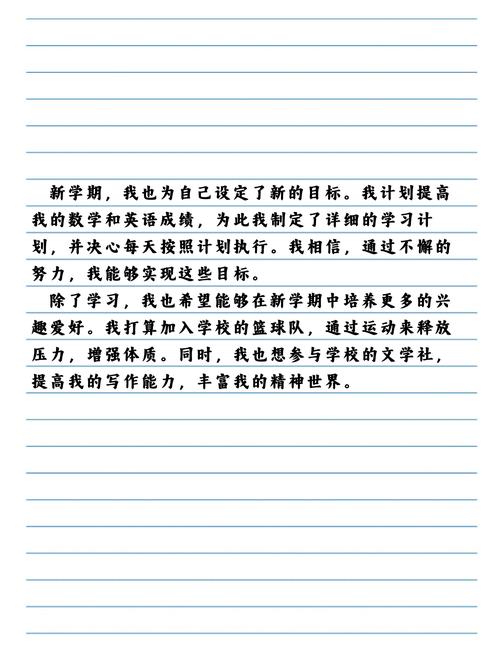 新学期，我也为自己设定了新的目标。我计划提高
我的数学和英语成绩，为此我制定了详细的学习计
划，并决心每天按照计划执行。我相信，通过不懈的
努力，我能够实现这些目标。
除了学习，我也希望能够在新学期中培养更多的兴
趣爱好。我打算加入学校的篮球队，通过运动来释放
压力，增强体质。同时，我也想参与学校的文学社，
提高我的写作能力，丰富我的精神世界。